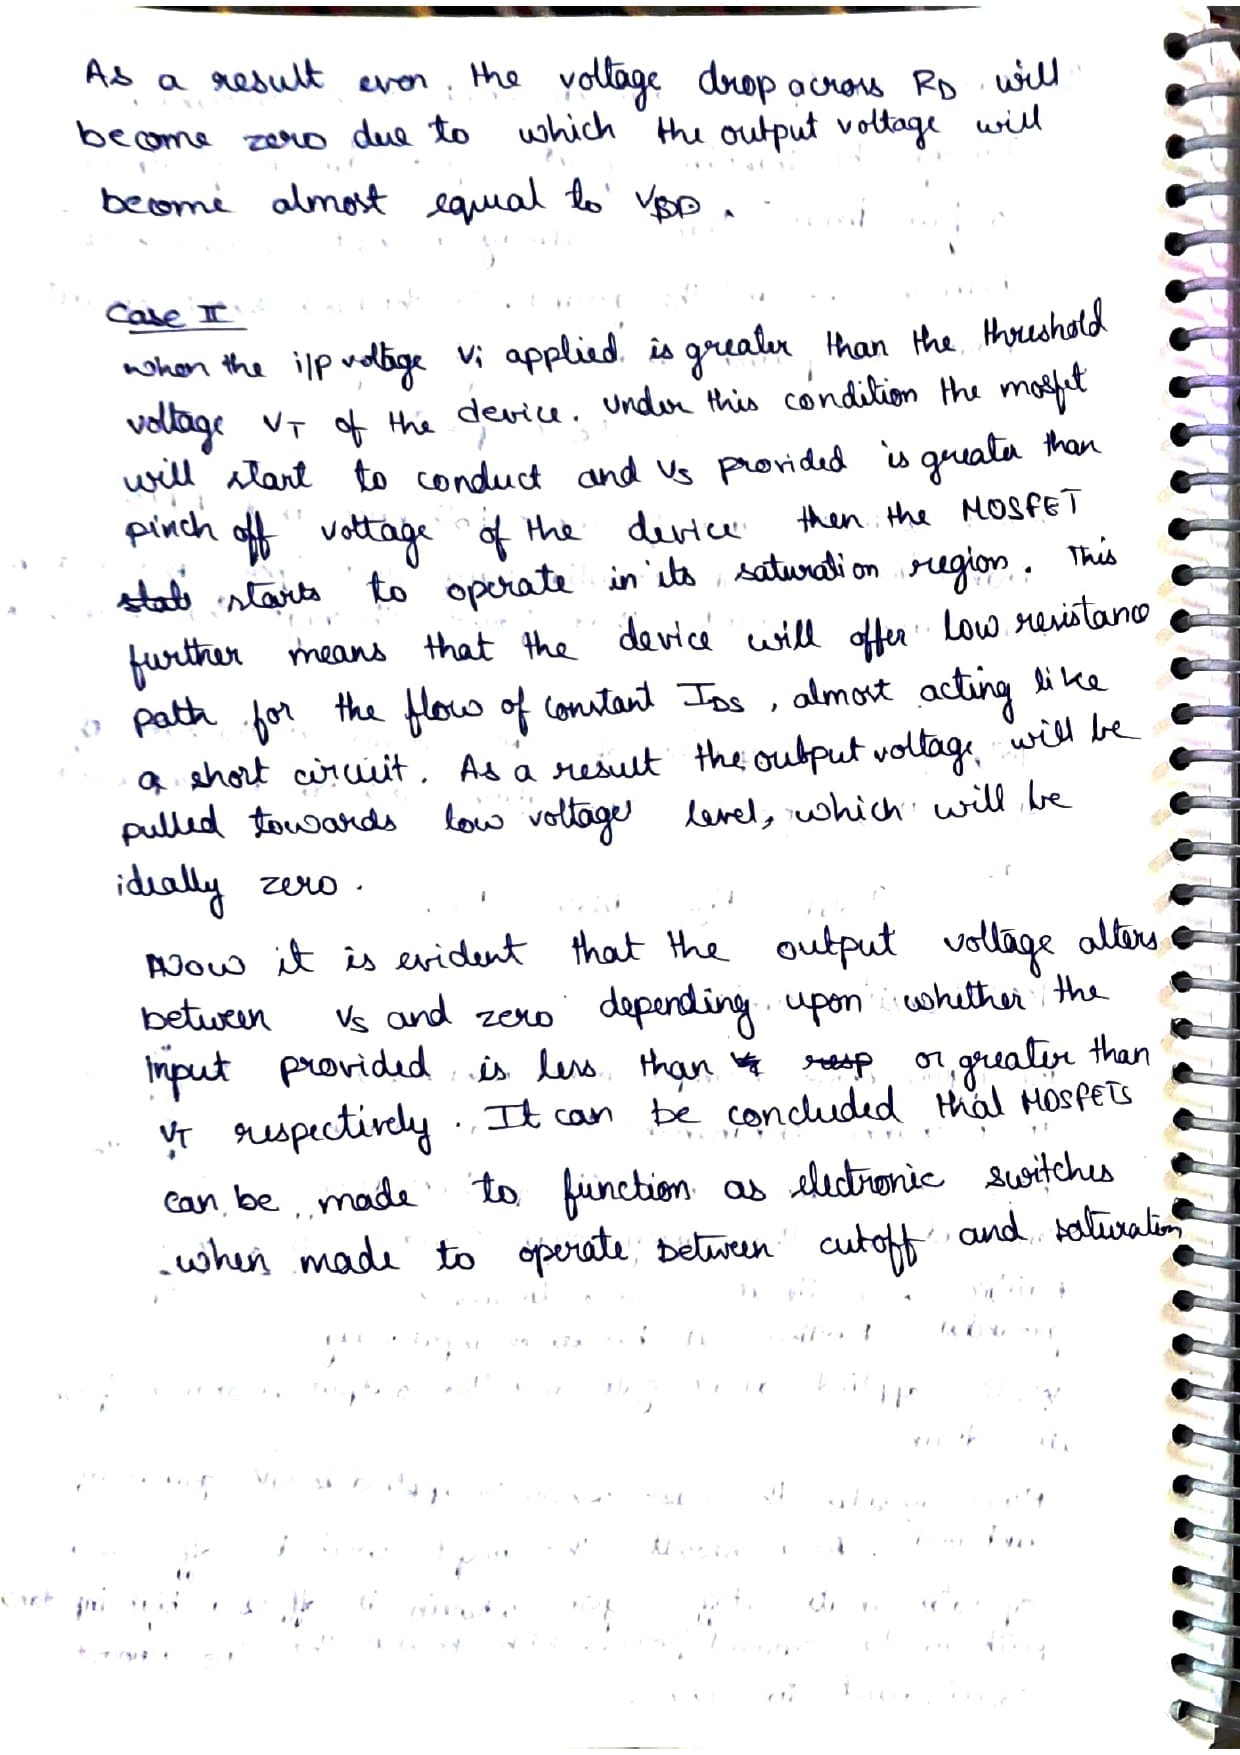 As a result even the voltage drop across RD will
become zero due to which the output voltage will
become almost equal to VDD.
Case II
When the i/p voltage Vi applied is greater than the threshold
voltage VT of the device. Under this condition the mosfet
will start to conduct and Vs provided is greater than
pinch off voltage of the device then the MOSFET
starts to operate in its saturation region. This
further means that the device will offer low resistance
path for the flow of constant IDS, almost acting like
a short circuit. As a result the output voltage will be
pulled towards low voltage level, which will be
ideally zero.
Now it is evident that the output voltage alters
between Vs and zero depending upon whether the
input provided is less than resp or greater than
VT respectively. It can be concluded that MOSFETS
can be made to function as electronic switches
when made to operate between cutoff and saturation